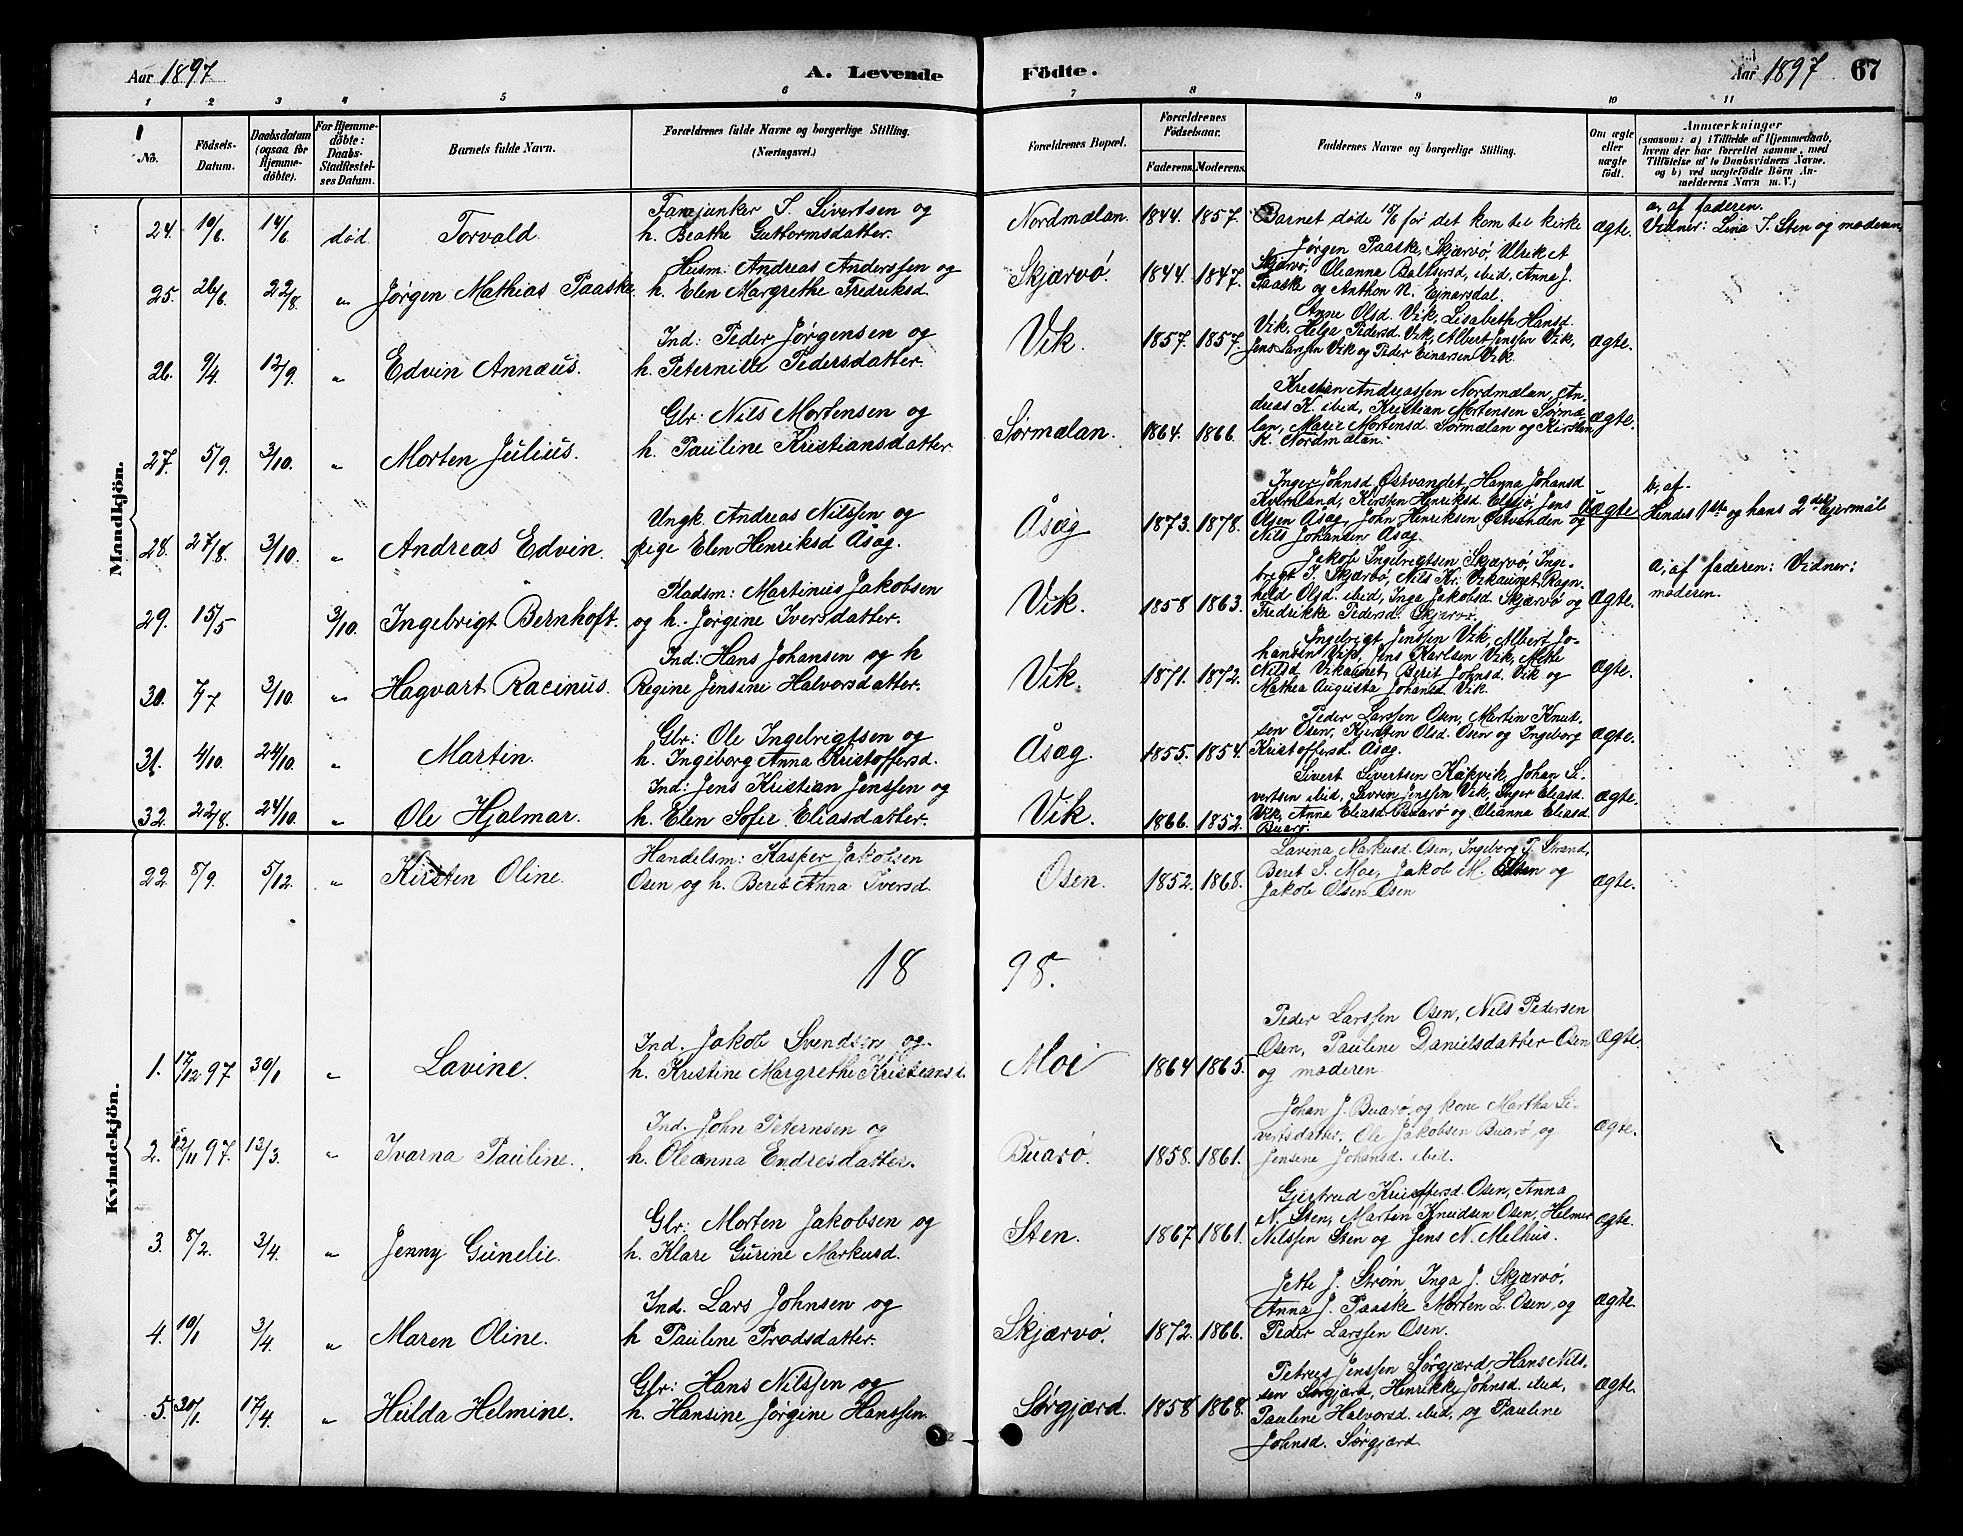 Aar 1897
A. Levende
Födte.
Aar 1897
67
1 2 3 4 5 6 7 8 9 10 11
No.
Födsels-
Datum.
Daabsdatum
(ogsaa för
Hjemme-
döbte).
For Hjemme-
döbte:
Daabs-
Stadfæstel-
ses Datum.
Barnets fulde Navn.
Forældrenes fulde Navne og borgerlige Stilling.
(Næringsvei.)
Forældrenes Bopæl.
Forældrenes
Födselsaar.
Faderens. Moderens.
Faddernes Navne og borgerlige Stilling.
Om ægte
eller
uægte
födt.
Anmærkninger
(saasom: a) i Tilfælde af Hjemmedaab,
hvem der har forrettet samme, med
Tilföielse af to Daabsvidners Navne,
og b) ved uægtefödte Börn An-
melderens Navn m. V.)
Mandkjön.
24. 10/6. 14/6 död. Torvald.
Fanejunker S. Sivertsen og
h. Beathe Guttormsdatter.
Nordmælan. 1844. 1857.
Barnet døde 15/6 før det kom til kirke
ægte.
a, af faderen.
Vidner: Lina J. Sten og moderen
25. 26/6. 22/8. „ Jørgen Mathias Paaske.
Husm: Andreas Anderssen og
h. Elen Margrethe Fredriksd.
Skjærvö 1844. 1847.
Jørgen Paaske, Skjærvö, Ulrik A
Skjærvö, Oleanna Baltsersd, ibid, Anna J.
Paaske og Anthon N. Ejnarsdal.
26. 9/4. 12/9. „ Edvin Annæus.
Ind: Peder Jørgensen og
h. Peternille Pedersdatter.
Vik. 1857. 1857.
Anne Olsd. Vik, Lisabeth Hansd.
Vik, Helga Pedersd. Vik, Albert Jenssen Vik,
Jens Larssen Vik og Peder Einarsen Vik.
ægte.
27. 5/9. 3/10. „ Morten Julius.
Glr. Nils Mortensen og
h. Pauline Kristiansdatter.
Sørmælan. 1864. 1866.
Kristen Andreassen Nordmælan, An-
dreas K. ibid, Kristian Mortensen Sørmæ-
lan, Marie Mortensd. Sørmælan og Kirsten
K. Nordmælan.
ægte.
28. 27/8. 3/10. „ Andreas Edvin.
Ungk. Andreas Nilssen og
pige Elen Henriksd Åsag.
Åsag 1873. 1878.
Inger Johnsd. Østvandet, Hanna Johansd
Kvernland, Kirsten Henriksd. Jens
Olsen Åsag, John Henriksen Østvanden og
Nils Johansen Åsag.
uægte
b, af
Hendes 1ste og hans 2det Lejermål
29. 15/5 3/10. Ingebrigt Bernhoft.
Pladsm: Martinus Jakobsen
og h. Jørgine Iversdatter.
Vik. 1858 1863.
Jakob Ingebrigtsen Skjærvö, Inge-
brigt J. Skjærvö, Nils Kr. Vikaunet, Ragn-
hild Olsd. ibid, Inga Jakobsd. Skjærvö og
Fredrikke Pedersd. Skjærvö.
ægte.
a, af faderen: Vidner:
moderen.
30. 7/7 3/10. „ Hagvart Racinus.
Ind: Hans Johansen og h
Regine Jensine Halvorsdatter.
Vik. 1871. 1872.
Ingebrigt Jenssen Vik, Albert Jo-
hansen Vik, Jens Karlsen Vik, Mette
Nilsd Vikaunet, Berit Johnsd. Vik og
Mathea Augusta Johansd Vik.
ægte.
31. 4/10. 24/10. „ Martin.
Glr: Ole Ingebrigtsen og
h. Ingeborg Anna Kristoffersd.
Åsag. 1855. 1854.
Peder Larssen Osen, Martin Knut-
sen Osen, Kjersten Olsd. Osen og Ingeborg
Kristoffersd. Åsag.
ægte.
32. 22/8. 24/10. „ Ole Hjalmar.
Ind: Jens Kristian Jenssen og
h. Elen Sofie Eliasdatter.
Vik. 1866. 1852.
Sivert Sivertsen Kåkvik, Johan Si-
vertsen ibid, Sivrin Jenssen Vik, Inger Eliasd.
Vik, Anna Eliasd. Buarö og Oleanna Eliasd
Buarö.
ægte.
Kvindekjön.
22. 8/9. 5/12. „ Kirsten Oline.
Handelsm: Kasper Jakobsen
Osen og h. Berit Anna Iversd.
Osen. 1852. 1868.
Lavina Markusd. Osen, Ingeborg T. Strand,
Beret S. Moe, Jakob M. Osen og
Jakob Olsen Osen
ægte.
18 98.
1. 17/12 97. 30/1 „ Lavine.
Ind. Jakob Svendsen og
h. Kristine Margrethe Kristiansd.
Moi 1864 1865.
Peder Larssen Osen, Nils Pedersen
Osen, Pauline Danielsdatter Osen
og moderen.
Ægte.
2. 12/11 97. 13/3. „ Ivarna Pauline.
Ind. John Peternsen og
h. Oleanna Endresdatter.
Buarö. 1858. 1861.
Johan J. Buarö og kone Martha Si-
vertsdatter, Ole Jakobsen Buarö, og
Jensine Johansd. ibid.
Ægte.
3. 8/2. 3/4. „ Jenny Gunelie.
Glr: Morten Jakobsen og
h. Klare Gurine Markusd.
Sten. 1867 1861.
Gjertrud Kristoffersd. Osen, Anna
N. Sten, Martin Knudsen Osen, Helmer
Nilssen Sten og Jens N. Melhus.
Ægte.
4. 10/1 3/4. „ Maren Oline.
Ind. Lars Johnsen og
h Pauline Prodsdatter.
Skjærvö. 1872. 1866.
Jette J. Strøm, Inga J. Skjærvö,
Anna J. Paaske Morten L. Osen, og
Peder Larssen Osen.
Ægte.
5. 30/1. 17/4. „ Hilda Helmine.
Glr: Hans Nilssen og
h. Hansine Jørgine Hanssen.
Sørgjærd. 1858 1868.
Petrus Jenssen Sørgjærd, Hans Nils-
sen Sørgjærd, Henrikke Johnsd. ibid,
Pauline Halvorsd. ibid, og Pauline
Johnsd. Sørgjærd.
Ægte.